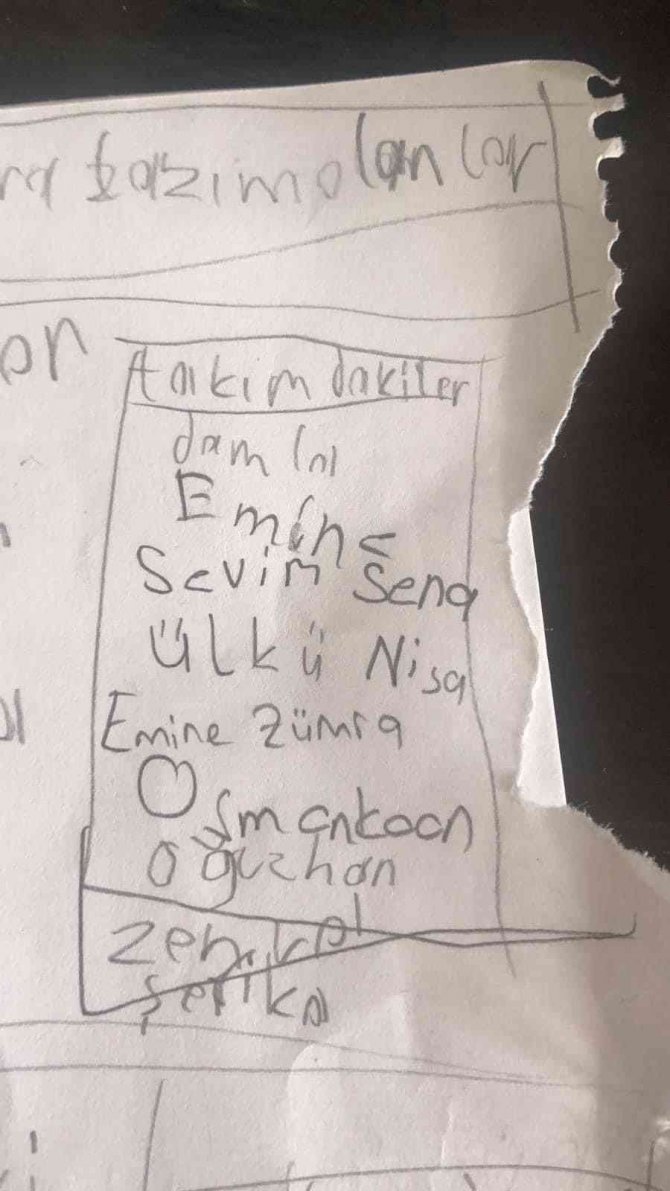 lazımolanlar
takımdakiler
damla
Emine
Sevim Sena
Ülkü Nisa
Emine Zümra
Osmankaan
Oğuzhan
Şerika